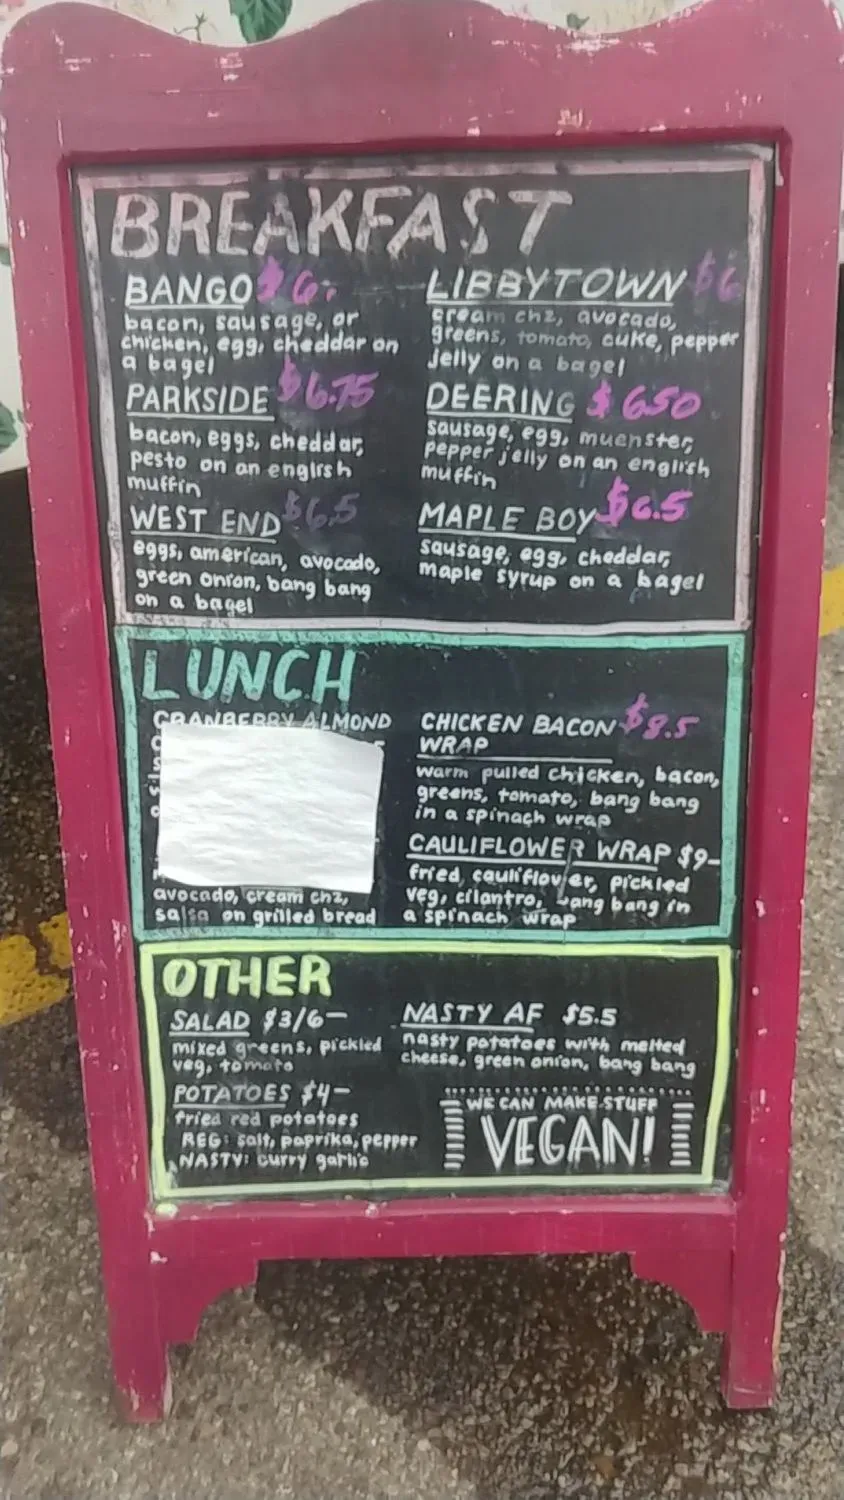 BREAKFAST
BANGO $6-
bacon, sausage, or
chicken, egg, cheddar on
a bagel
PARKSIDE $6.75
bacon, eggs, cheddar,
pesto on an english
muffin
WEST END $6.5
eggs, american, avocado,
green onion, bang bang
on a bagel
LIBBYTOWN $6
cream chz, avocado,
greens, tomato, cuke, pepper
jelly on a bagel
DEERING $650
sausage, egg, muenster,
pepper jelly on an english
muffin
MAPLE BOY $6.5
sausage, egg, cheddar,
maple syrup on a bagel
LUNCH
CRANBERRY ALMOND
avocado, cream chz,
salsa on grilled bread
CHICKEN BACON $8.5
WRAP
warm pulled chicken, bacon,
greens, tomato, bang bang
in a spinach wrap
CAULIFLOWER WRAP $9-
fried cauliflower, pickled
veg, cilantro, bang bang in
a spinach wrap
OTHER
SALAD $3/6-
mixed greens, pickled
veg, tomato
POTATOES $4-
fried red potatoes
REG: salt, paprika, pepper
NASTY: curry garlic
NASTY AF $5.5
nasty potatoes with melted
cheese, green onion, bang bang
WE CAN MAKE STUFF
VEGAN!